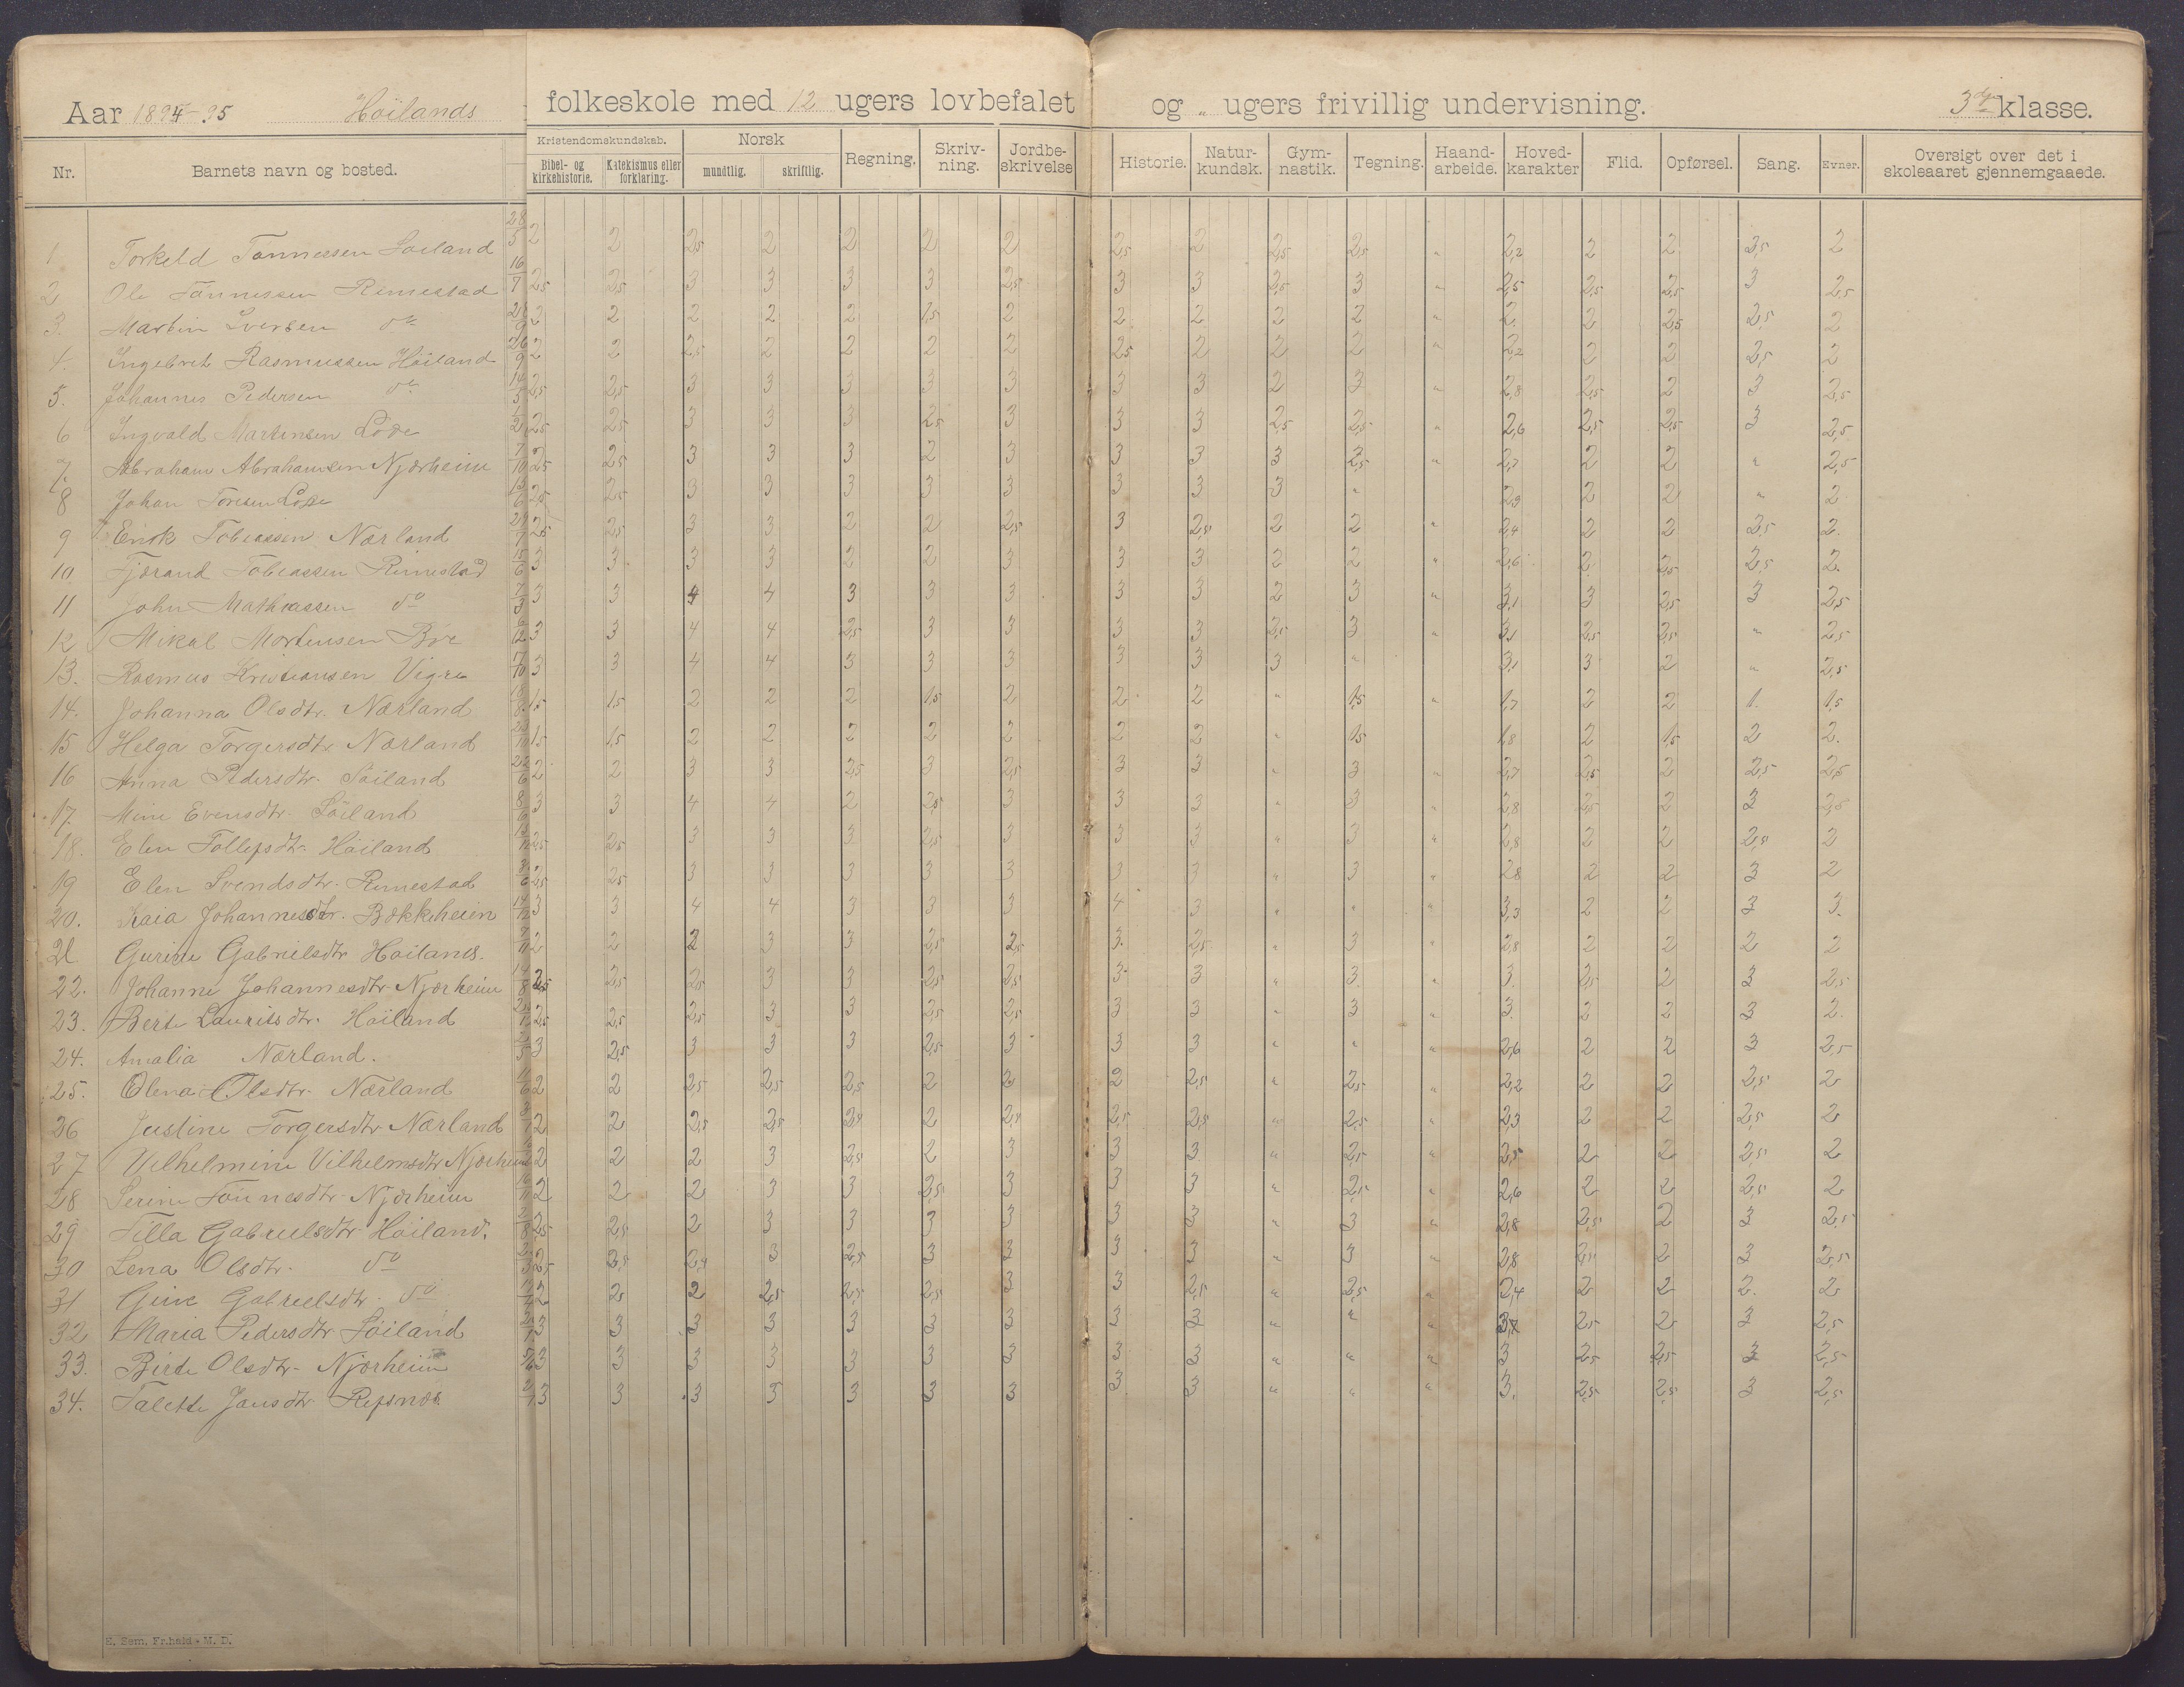 Aar 1894-95 Höilands folkeskole med 12 ugers lovbefalet og „ ugers frivillig undervisning. 3die klasse.
Nr. Barnets navn og bosted. Kristendomskundskab. Bibel- og kirkehistorie. Katekismus eller forklaring. Norsk mundtlig. skriftlig. Regning. Skriv-ning. Jordbe-skrivelse Historie. Natur-kundsk. Gym-nastik. Tegning. Haand-arbeide. Hoved-karakter Flid. Opførsel. Sang. Evner. Oversigt over det i skoleaaret gjennemgaaede.
1 Torkeld Tönnessen Söiland 28/5 2 2 2,5 2 2 2 2 2,5 2 2,5 2,5 „ 2,2 2 2 2,5 2
2 Ole Tönnessen Rimestad 16/7 2,5 2,5 3 3 3 3 2,5 3 3 2,5 3 „ 2,5 2,5 2,5 3 2,5
3. Martin Iversen do 2 2 2 2 2 1,5 2 2 2 2 2 „ 2 2 2,5 2,5 2
4. Ingebret Rasmussen Höiland 26/9 2 2 2,5 2 2 2 2 2,5 2 2 2 „ 2,2 2 2 2,5 2
5. Johannes Pedersen do 14/5 2,5 2,5 3 3 3 3 3 3 3 2 3 „ 2,8 2,5 2 3 2,5
6 Ingvald Martensen Lode 1/2 2,5 2,5 3 3 3 2,5 3 3 3 2,5 2,5 „ 2,6 2,5 2,5 3 2,5
7. Abraham Abrahamsen Njærheim 7/10 2,5 2,5 3 3 3 2 3 3 3 3 2,5 „ 2,7 2 2 „ 2,5
8 Johan Toresen Lode 13/6 2,5 2,5 3 3 3 3 3 3 3 3 „ 2,9 2 2 „ 2
9 Enok Tobiassen Nærland 24/7 2,5 2,5 3 3 2 2 2,5 3 2,5 2 2 „ 2,4 2 2 2,5 2.
10 Tjærand Tobiassen Rimestad 15/6 3 3 3 3 2 2 3 3 3 2 2 „ 2,6 2 2,5 2,5 2.
11 John Mathiassen do 7/3 3 3 4 4 3 3 3 3 3 2 3 „ 3,1 3 2,5 3 2,5
12 Mikal Mortensen Bøe 6/12 3 3 4 4 2,5 3 3 3 3 2,5 3 „ 3,1 2,5 2,5 „ 2,5
13. Rasmus Kristiansen Vigre 17/10 3 3 4 4 3 3 3 3 3 3 „ „ 3,1 3 2 „ 2,5
14. Johanna Olsdtr. Nærland 18/8 1,5 1,5 2 2 2 1,5 2 2 2 „ 1,5 „ 1,7 2 2 1. 1,5
15 Helga Torgersdtr. Nærland 1,5 1,5 2 2 2 2 2 2 2 „ 1,5 1,8 2 1,5 2 2.
16 Anna Pedersdtr. Söiland 22/6 2 2 3 3 2,5 3 2,5 3 3 „ 3 „ 2,7 2,5 2 2,5 2,5
17. Mine Evensdtr. Söiland 8/6 3 3 4 4 2 2,5 3 3 3 „ 3 „ 2,8 2,5 2 3 2,5
18. Elen Tollefsdtr. Höiland 2,5 2,5 3 3 3 2,5 3 3 3 „ 3 „ 2,8 2 2 2,5 2
19 Elen Svendsdtr. Rimestad 2,5 2,5 3 3 3 3 3 3 3 „ 3 „ 2,8 2 2 3 2
20. Kaia Johannesdtr. Bækkeheien 14/12 3 3 4 4 3 3 3 4 3 „ „ „ 3,3 2 2 3 3.
21 Gurine Gabrielsdtr Höiland. 7/11 2 2 2 3 3 2,5 2,5 3. 2,5 „ 3 „ 2,8 2 2 2 2
22. Johanne Johannesdtr Njærheim 14/8 2,5 2,5 2,5 3 3 2,5 2,5 3 3 „ 3. „ 3. 2,5 2 3 2,5
23. Berte Lauritsdtr. Höiland 2,5 2,5 2,5 3 3 2,5 2,5 3 3 „ 3 „ 3. 2 2 3 2.
24. Amalia Nærland. 3 2,5 3 3 3 2,5 3 3 3 „ „ „ 2,6 2 2 3 2,5
25. Olena Olsdtr. Nærland 11/6 2 2 2,5 2,5 2,5 2 2 2 2,5 „ 2,5 „ 2,2 2 2 2,5 2
26 Justine Torgersdtr Nærland 2 2 2,5 2,5 2,4 2 2,4 2,5 2,5 „ 2,5 „ 2,3 2 2 2,5 2
27 Vilhelmine Vilhelmsdtr Njærheim 2 2 2 3 2,5 2 3 3 3 „ 2,5 „ 2,5 2 2 2,5 2
28 Serine Tönnesdtr. Njærheim 16/11 2 2 2 3 3 2,5 3 3 3 „ 2,5 „ 2,6 2 2 2,5 2
29 Tilla Gabrielsdtr Höiland. 2/8 2,5 2,5 2 3 3 3 3 3 3 „ 3 „ 2,8 2,5 2 3 2,5
30 Lena Olsdtr. do 2,5 2,5 2,4 3 2,5 3 3 3 3 „ 3 „ 2,8 2,5 2 3 2,5
31 Gine Gabrielsdtr. do 2 2,5 2 2,5 2,5 2,5 3 3 2,5 „ 2,5 „ 2,4 2 2 2. 2
32 Maria Pedersdtr Söiland 3 3 3 3 3 3 3 3 3 „ „ „ 2,5 2 3 2,5
33. Birte Olsdtr. Njærheim 3 3 3 3 3 3 3 3 3 „ „ „ 3 2,5 2,5 3 2,5
34. Talette Jansdtr. Refsnæs 3 3 3 3 3 3 3 3 3 „ „ „ 3. 2,5 2,5 3 2,5
E. Sem, Fr.hald - M. D.